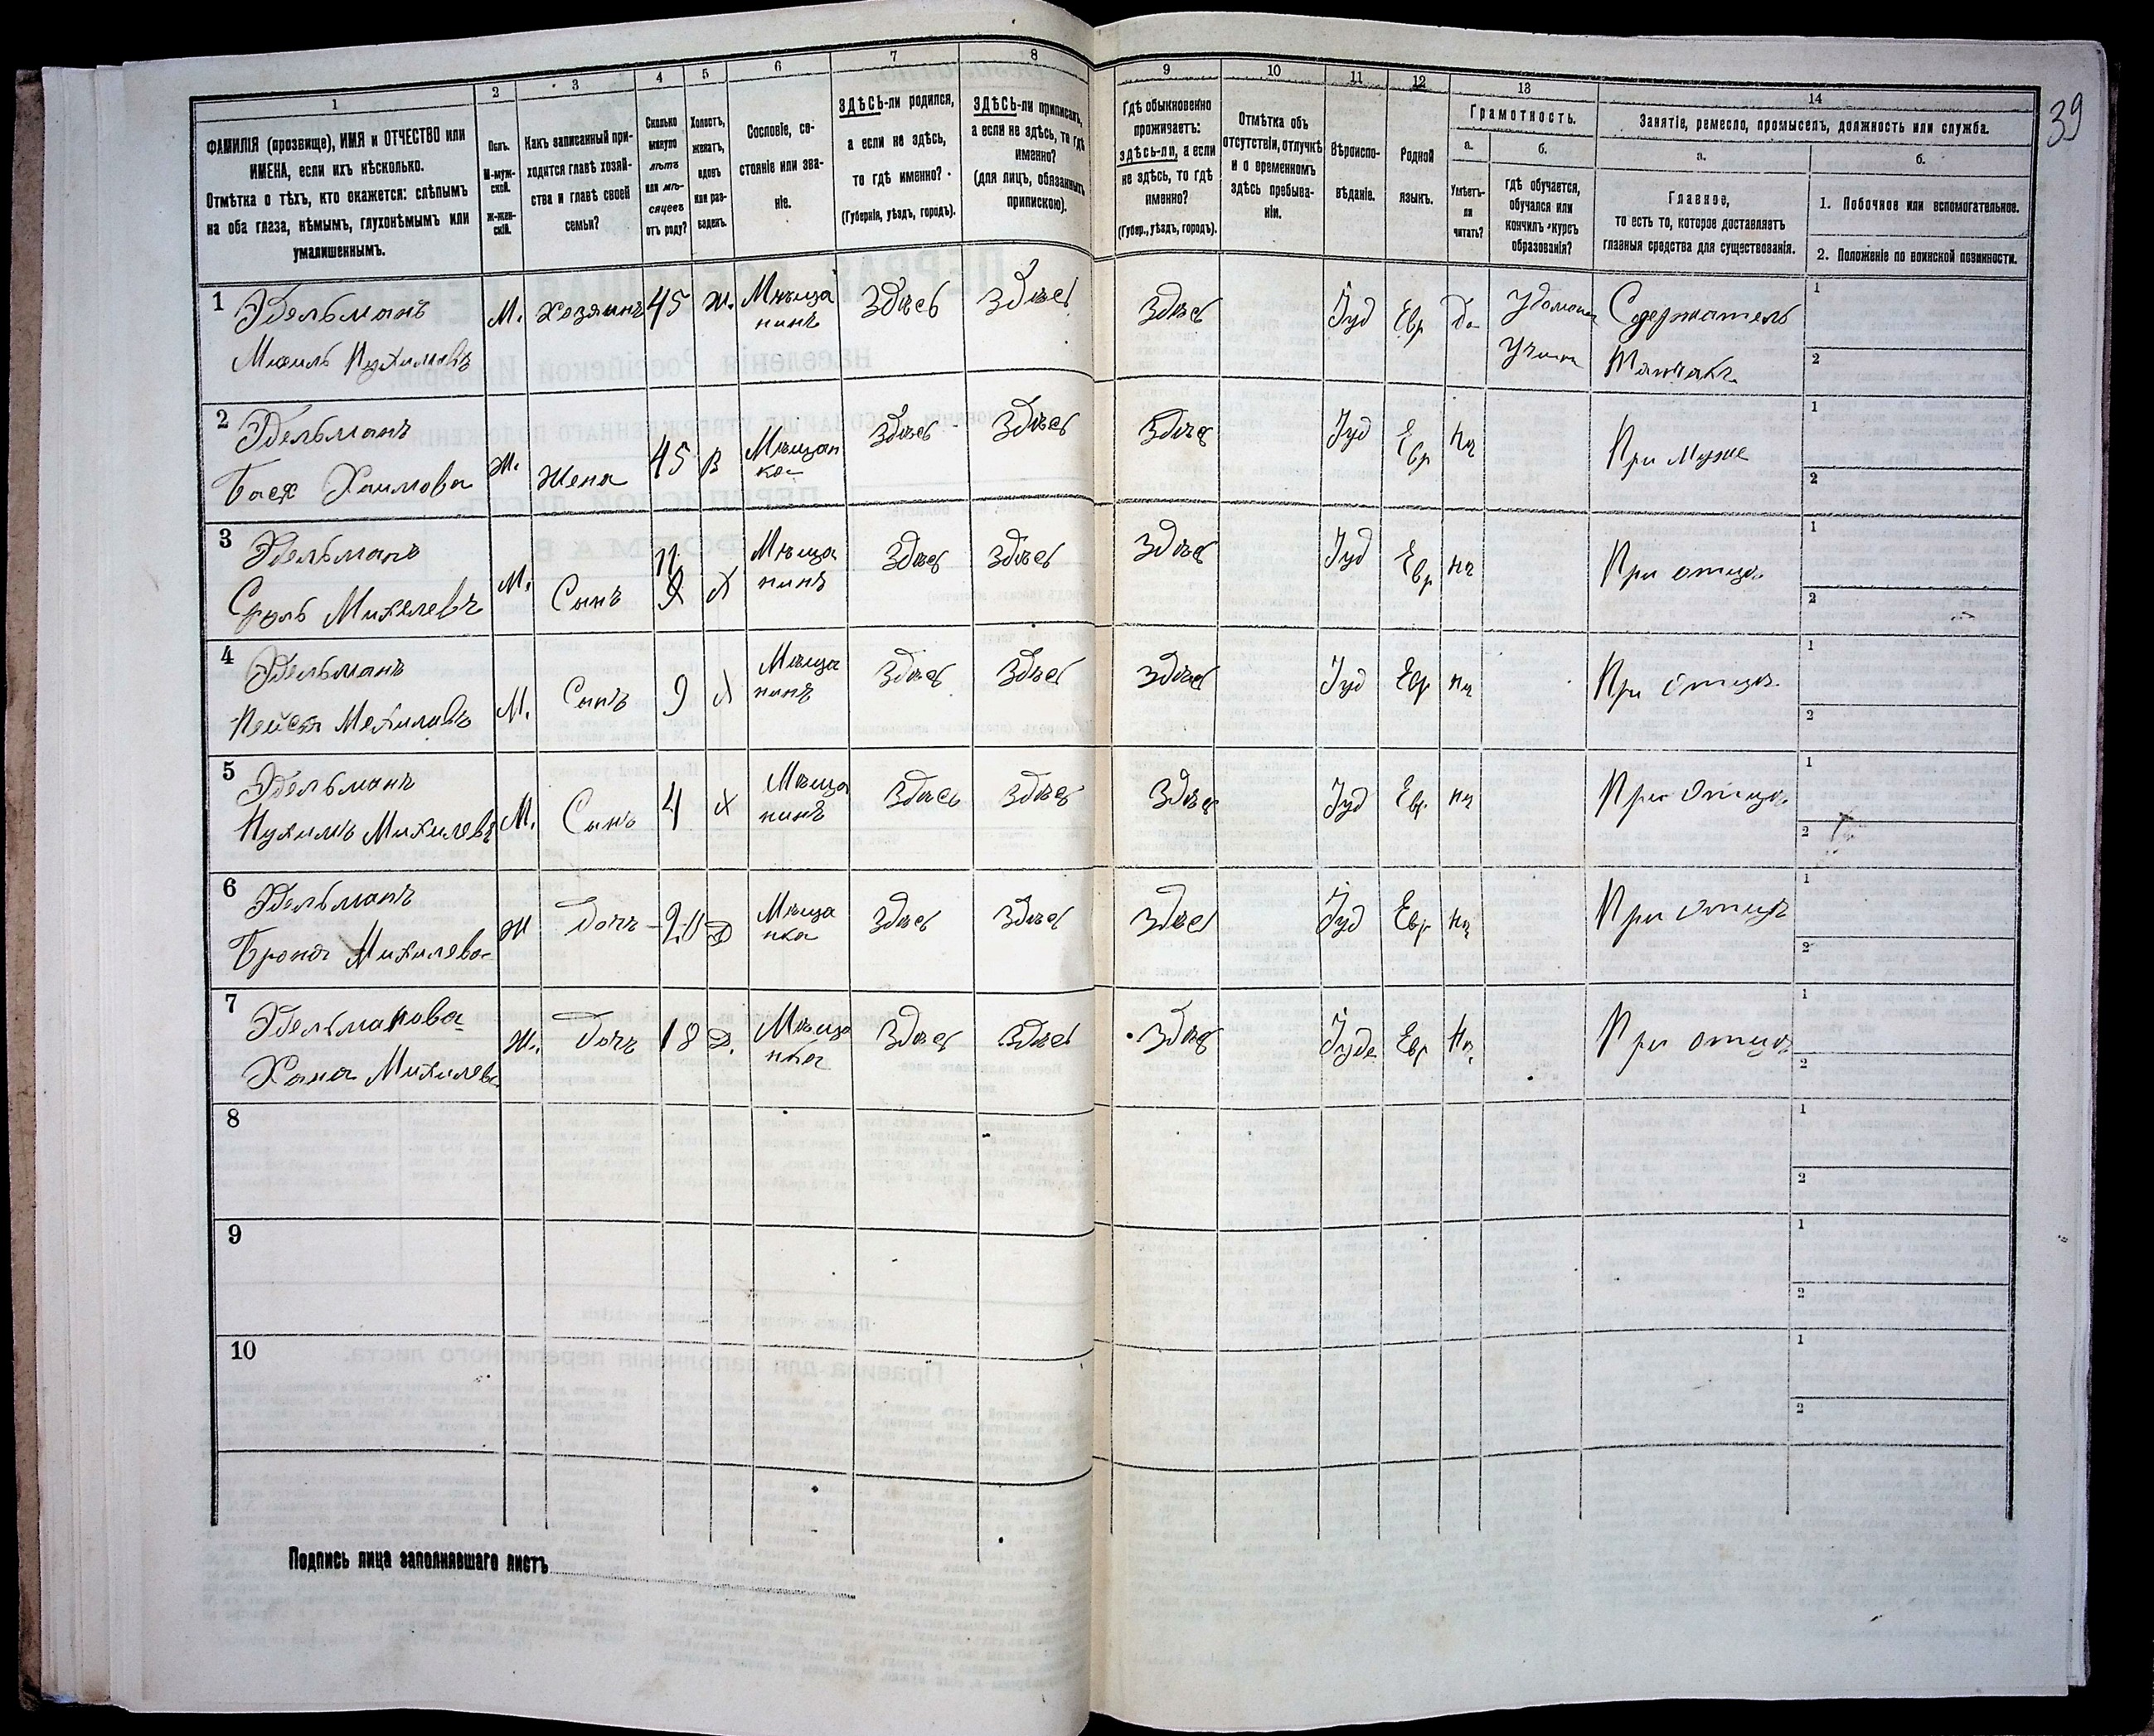 39
1 2 3 4 5 6 7 8 9 10 11 12 13 14
ФАМИЛІЯ (прозвище), ИМЯ и ОТЧЕСТВО или
ИМЕНА, если ихъ нѣсколько.
Отмѣтка о тѣхъ, кто окажется: слѣпымъ
на оба глаза, нѣмымъ, глухонѣмымъ или
умалишеннымъ.
Полъ.
М-муж-
ской.
Ж-жен-
скій.
Какъ записанный при-
ходится главѣ хозяй-
ства и главѣ своей
семьи?
Сколько
минуло
лѣтъ
или мѣ-
сяцевъ
отъ роду?
Холостъ,
женатъ,
вдовъ
или раз-
веденъ.
Сословіе, со-
стояніе или зва-
ніе.
ЗДѢСЬ-ли родился,
а если не здѣсь,
то гдѣ именно?
(Губернія, уѣздъ, городъ).
ЗДѢСЬ-ли приписанъ,
а если не здѣсь, то гдѣ
именно?
(для лицъ, обязанныхъ
припискою).
Гдѣ обыкновенно
проживаетъ:
здѣсь-ли, а если
не здѣсь, то гдѣ
именно?
(Губер., уѣздъ, городъ).
Отмѣтка объ
отсутствіи, отлучкѣ
и о временномъ
здѣсь пребыва-
ніи.
Вѣроиспо-
вѣданіе.
Родной
языкъ.
Грамотность.
а.
Умѣетъ-
ли
читать?
б.
гдѣ обучается,
обучался или
кончилъ курсъ
образованія?
Занятіе, ремесло, промыселъ, должность или служба.
а.
Главное,
то есть то, которое доставляетъ
главныя средства для существованія.
б.
1. Побочное или вспомогательное.
2. Положеніе по воинской повинности.
1 Эдельманъ М. Хозяинъ 45 Ж. Мѣща Здѣсь Здѣсь Здѣсь Іуд Евр Да Содержатель 1
нинъ 2
2 Эдельманъ Ж. Жена 45 Мѣщан Здѣсь Здѣсь Здѣсь Іуд Евр При Муже 1
Бася Хаимова ка 2
3 Эдельманъ М. Сынъ 11 Х Мѣща Здѣсь Здѣсь Здѣсь Іуд Евр При отцѣ 1
Сруль Михелевъ нинъ 2
4 Эдельманъ М. Сынъ 9 Х Мѣща Здѣсь Здѣсь Здѣсь Іуд Евр При Отцѣ 1
нинъ 2
5 Эдельманъ М. Сынъ 4 Х Мѣща Здѣсь Здѣсь Здѣсь Іуд Евр При Отцѣ 1
Нухимъ Михилевъ нинъ 2
6 Эдельманъ Ж Дочь 20 Д Мѣща Здѣсь Здѣсь Здѣсь Іуд Евр При Отцѣ 1
Михилева нка 2
7 Эдельманова Ж. Дочь 18 Д. Мѣща Здѣсь Здѣсь Здѣсь Іуде Евр При отцѣ 1
Хана Михилева нка 2
8 1
2
9 1
2
10 1
2
Подпись лица заполнявшаго листъ